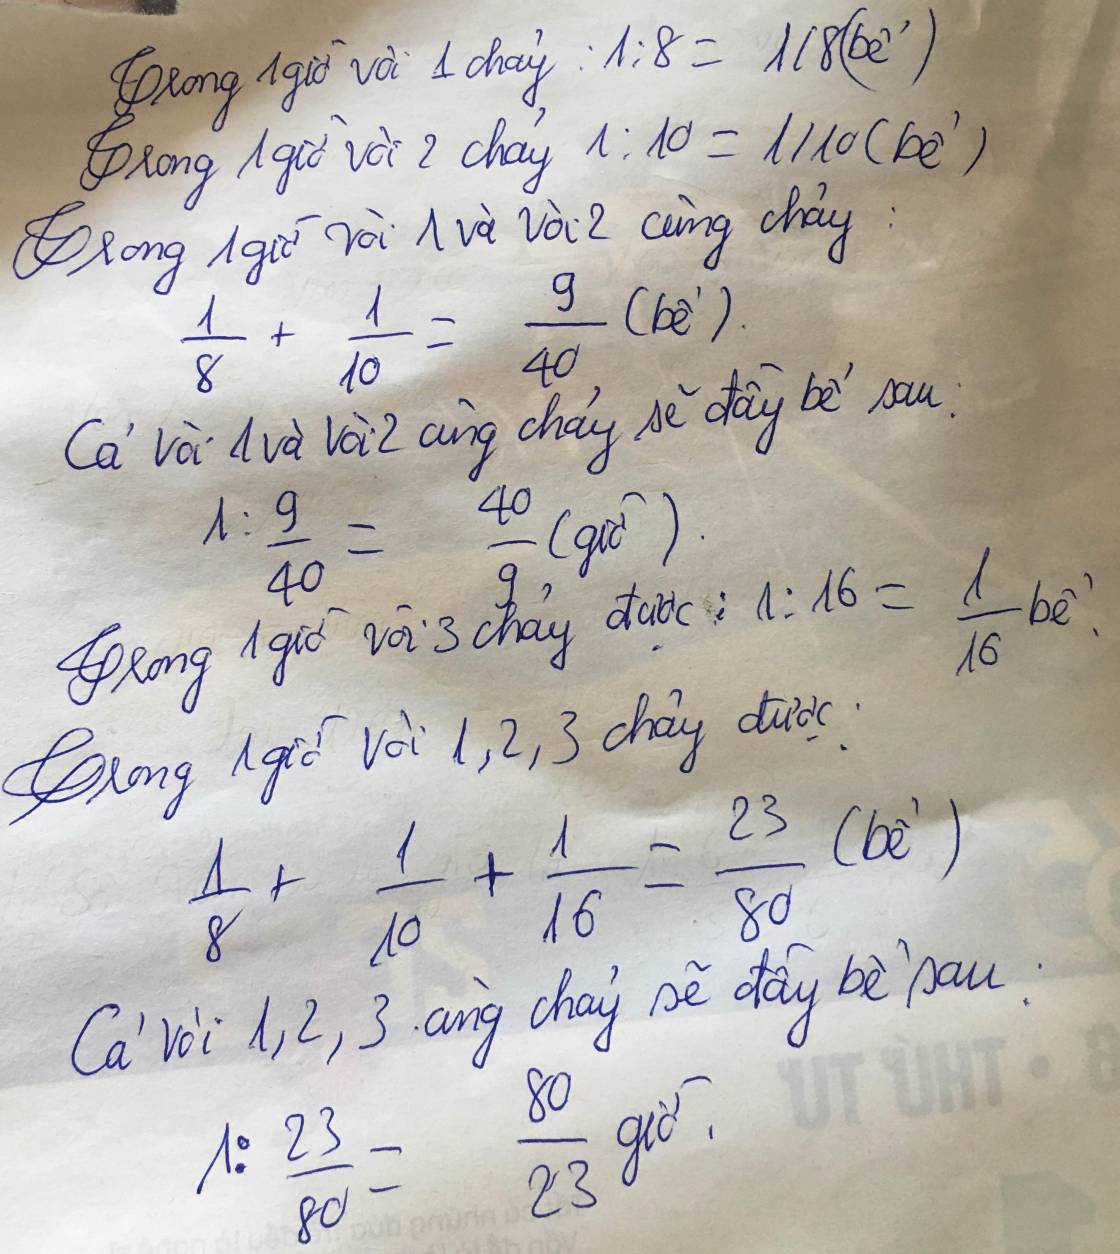 Trong 1 giờ vòi 1 chảy : 1 : 8 = 1/8 (bể)
Trong 1 giờ vòi 2 chảy 1 : 10 = 1/10 (bể)
Trong 1 giờ vòi 1 và vòi 2 cùng chảy :
1/8 + 1/10 = 9/40 (bể).
Cả vòi 1 và vòi 2 cùng chảy sẽ đầy bể sau :
1 : 9/40 = 40/9 (giờ).
Trong 1 giờ vòi 3 chảy được : 1 : 16 = 1/16 bể.
Trong 1 giờ vòi 1, 2, 3 chảy được :
1/8 + 1/10 + 1/16 = 23/80 (bể)
Cả vòi 1, 2, 3 cùng chảy sẽ đầy bể sau :
1 : 23/80 = 80/23 giờ.
THỨ TƯ